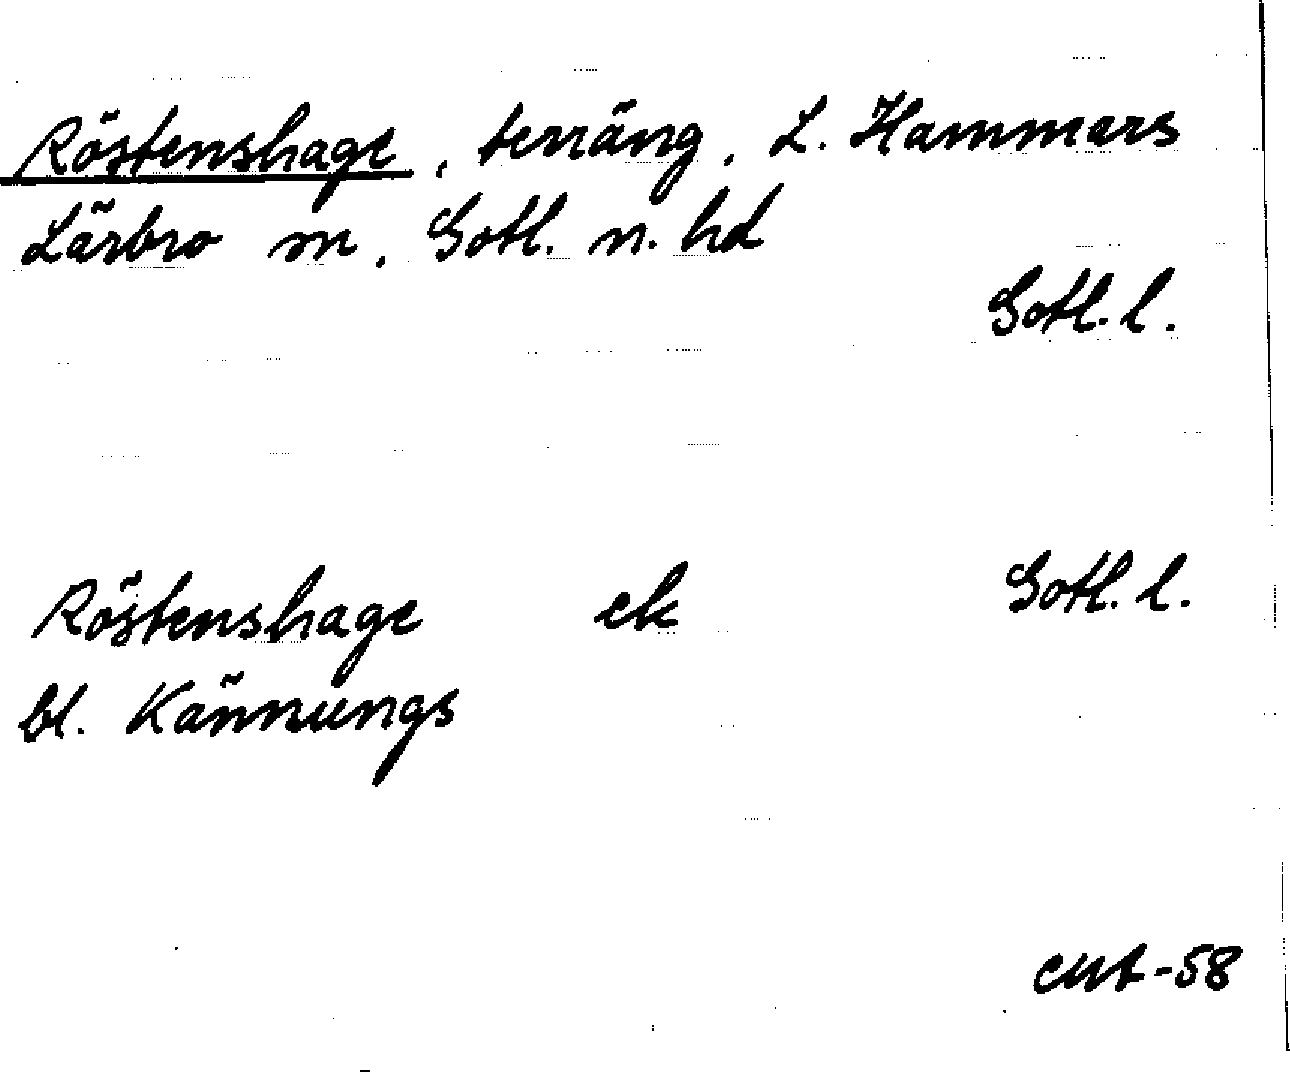 Röstenshage, terräng, L. Hammars
Lärbro sn, Gotl. n. hd
Gotl. l.
Röstenshage ek Gotl. l.
bl. Kännungs
-58